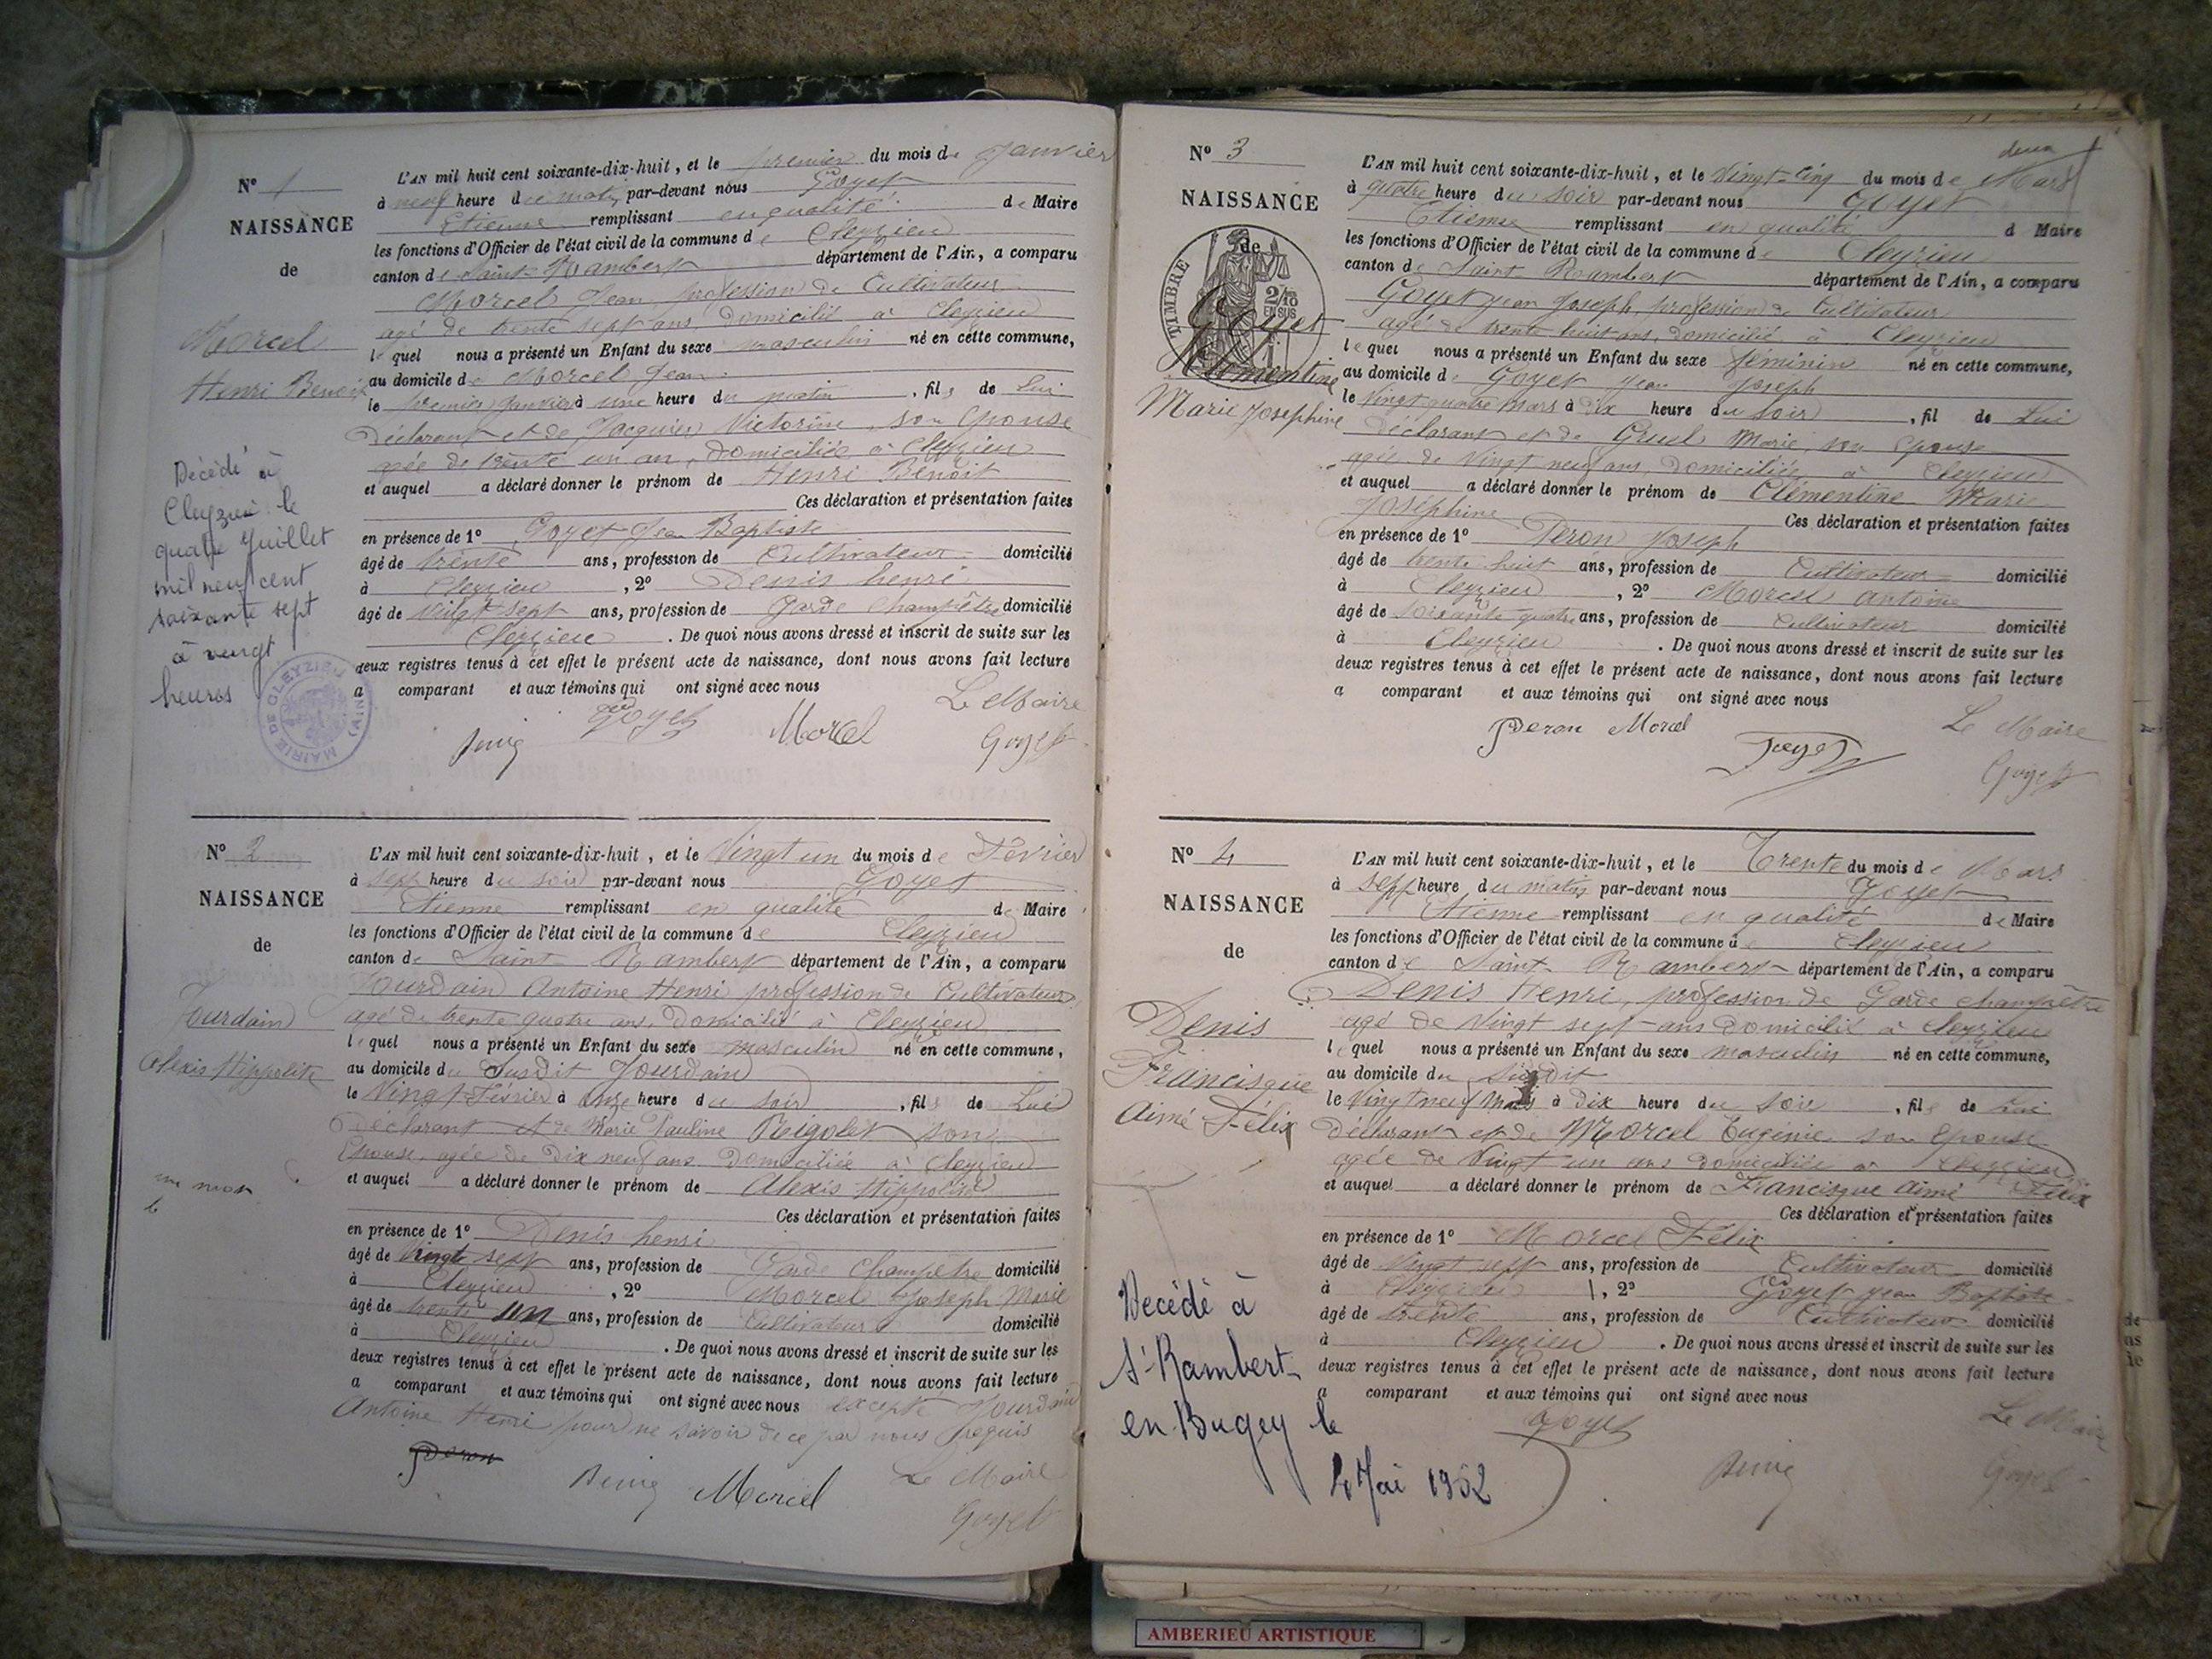 N° 1
NAISSANCE
de
Morcel
Henri Benoit
Décédé à
Cleyzieu le
quatre Juillet
mil neuf cent
soixante sept
à vingt
heures
MAIRIE DE CLEYZIEU (AIN)
L'AN mil huit cent soixante-dix-huit, et le premier du mois de Janvier
à neuf heure du matin par-devant nous Goyet
Etienne remplissant en qualité de Maire
les fonctions d'Officier de l'état civil de la commune de Cleyzieu
canton de Saint Rambert département de l'Ain, a comparu
Morcel Jean, profession de Cultivateur
agé de trente sept ans domicilié à Cleyzieu
lequel nous a présenté un Enfant du sexe masculin né en cette commune,
au domicile de Morcel Jean
le premier Janvier à une heure du matin, fils de Lui
Déclarant et de Jacquier Victorine, son Epouse
agée de trente un an, domiciliée à Cleyzieu
et auquel a déclaré donner le prénom de Henri Benoit
Ces déclaration et présentation faites
en présence de 1° Goyet Jean Baptiste
âgé de trente ans, profession de Cultivateur domicilié
à Cleyzieu, 2° Denis henri
âgé de vingt sept ans, profession de Garde Champêtre domicilié
Cleyzieu. De quoi nous avons dressé et inscrit de suite sur les
deux registres tenus à cet effet le présent acte de naissance, dont nous avons fait lecture
a comparant et aux témoins qui ont signé avec nous
Le Maire
Goyet Morcel
Denis Goyet
N° 2
NAISSANCE
de
Jourdain
Alexis Hippolite
L'AN mil huit cent soixante-dix-huit, et le Vingt un du mois de Février
à sept heure du soir par-devant nous Goyet
Etienne remplissant en qualité de Maire
les fonctions d'Officier de l'état civil de la commune de Cleyzieu
canton de Saint Rambert département de l'Ain, a comparu
Jourdain Antoine Henri profession de Cultivateur
agé de trente quatre ans, Domicilié à Cleyzieu
lequel nous a présenté un Enfant du sexe masculin né en cette commune,
au domicile du Susdit Jourdain
le Vingt Février à onze heure du soir, fils de Lui
Déclarant et de Marie Pauline Rigolet son
Epouse, agée de Dix neuf ans Domiciliée à Cleyzieu
et auquel a déclaré donner le prénom de Alexis Hippolite
Ces déclaration et présentation faites
en présence de 1° Denis henri
âgé de Vingt sept ans, profession de Garde Champêtre domicilié
à Cleyzieu, 2° Morcel Joseph Marie
âgé de trente un ans, profession de Cultivateur domicilié
à Cleyzieu. De quoi nous avons dressé et inscrit de suite sur les
deux registres tenus à cet effet le présent acte de naissance, dont nous avons fait lecture
a comparant et aux témoins qui ont signé avec nous excepté Jourdain
Antoine Henri pour ne savoir de ce par nous requis
Peron
Denis Morcel Le Maire
Goyet
N° 3
NAISSANCE
de
TIMBRE
2/10
EN SUS
Goyet
Clémentine
Marie Joséphine
L'AN mil huit cent soixante-dix-huit, et le Vingt-cinq du mois de Mars
à quatre heure du soir par-devant nous Goyet
Etienne remplissant en qualité d Maire
les fonctions d'Officier de l'état civil de la commune de Cleyzieu
canton de Saint Rambert département de l'Ain, a comparu
Goyet Jean Joseph, profession de Cultivateur
agé de trente huit ans, domicilié à Cleyzieu
lequel nous a présenté un Enfant du sexe féminin né en cette commune,
au domicile de Goyet Jean Joseph
le Vingt quatre mars à dix heure du soir, fil de Lui
Déclarant et de Gruel Marie, son Epouse
agée de Vingt neuf ans, Domiciliée à Cleyzieu
et auquel a déclaré donner le prénom de Clémentine Marie
Joséphine Ces déclaration et présentation faites
en présence de 1° Peron Joseph
âgé de trente huit ans, profession de Cultivateur domicilié
à Cleyzieu, 2° Morcel Antoine
âgé de soixante quatre ans, profession de Cultivateur domicilié
à Cleyzieu. De quoi nous avons dressé et inscrit de suite sur les
deux registres tenus à cet effet le présent acte de naissance, dont nous avons fait lecture
a comparant et aux témoins qui ont signé avec nous
Peron Morcel Le Maire
Goyet Goyet
N° 4
NAISSANCE
de
Denis
Francisque
Aimé Félix
Décédé à
St Rambert
en Bugey le
4 Mai 1952
L'AN mil huit cent soixante-dix-huit, et le Trente du mois de Mars
à sept heure du matin par-devant nous Goyet
Etienne remplissant en qualité de Maire
les fonctions d'Officier de l'état civil de la commune de Cleyzieu
canton de Saint Rambert département de l'Ain, a comparu
Denis Henri, profession de Garde champêtre
agé de Vingt sept ans domicilié à Cleyzieu
lequel nous a présenté un Enfant du sexe masculin né en cette commune,
au domicile du susdit
le Vingt neuf Mars à dix heure du soir, fils de Lui
Déclarant et de Morcel Eugénie son Epouse
agée de Vingt un ans domiciliée à Cleyzieu
et auquel a déclaré donner le prénom de Francisque Aimé Félix
Ces déclaration et présentation faites
en présence de 1° Morcel Félix
âgé de Vingt sept ans, profession de Cultivateur domicilié
à Cleyzieu, 2° Goyet Jean Baptiste
âgé de trente ans, profession de Cultivateur domicilié
à Cleyzieu. De quoi nous avons dressé et inscrit de suite sur les
deux registres tenus à cet effet le présent acte de naissance, dont nous avons fait lecture
a comparant et aux témoins qui ont signé avec nous
Goyet Le Maire
Denis Goyet
AMBERIEU ARTISTIQUE